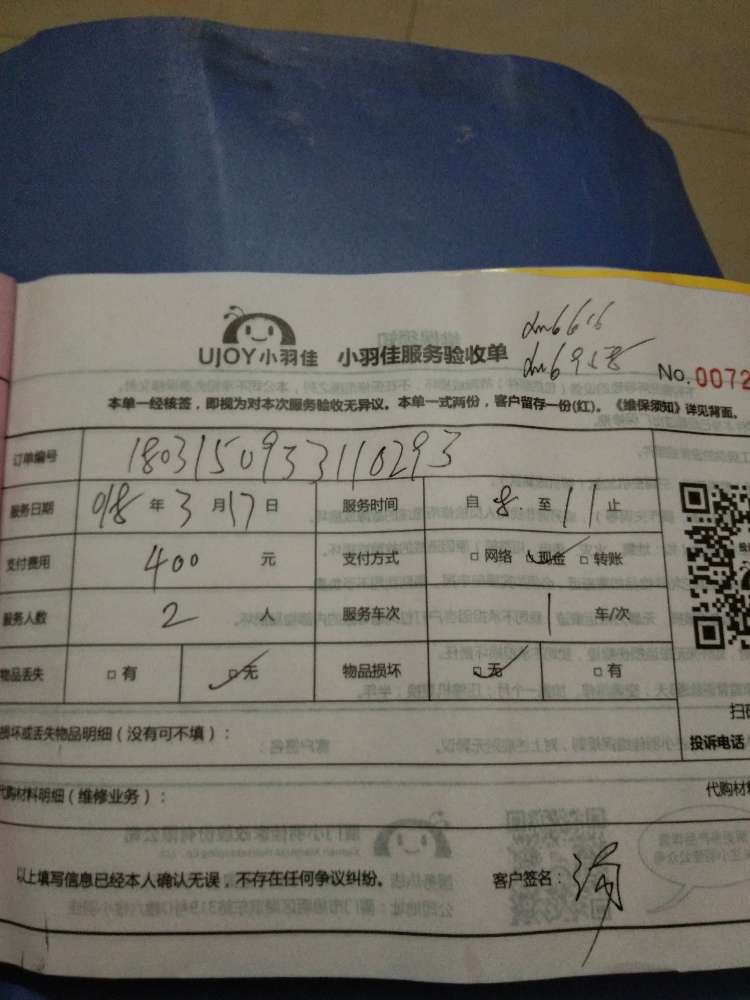 UJOY小羽佳 小羽佳服务验收单
No. 0072
本单一经核签，即视为对本次服务验收无异议。本单一式两份，客户留存一份(红)。《维保须知》详见背面。
订单编号 1803150933110293
服务日期 018 年 3 月 17 日 服务时间 自 8 至 11 止
支付费用 400 元 支付方式 □网络 □现金 □转账
服务人数 2 人 服务车次 1 车/次
物品丢失 □有 □无 物品损坏 □无 □有
损坏或丢失物品明细（没有可不填）：
扫
投诉电话
代购材料明细（维修业务）：
代购材
以上填写信息已经本人确认无误，不存在任何争议纠纷。 客户签名：